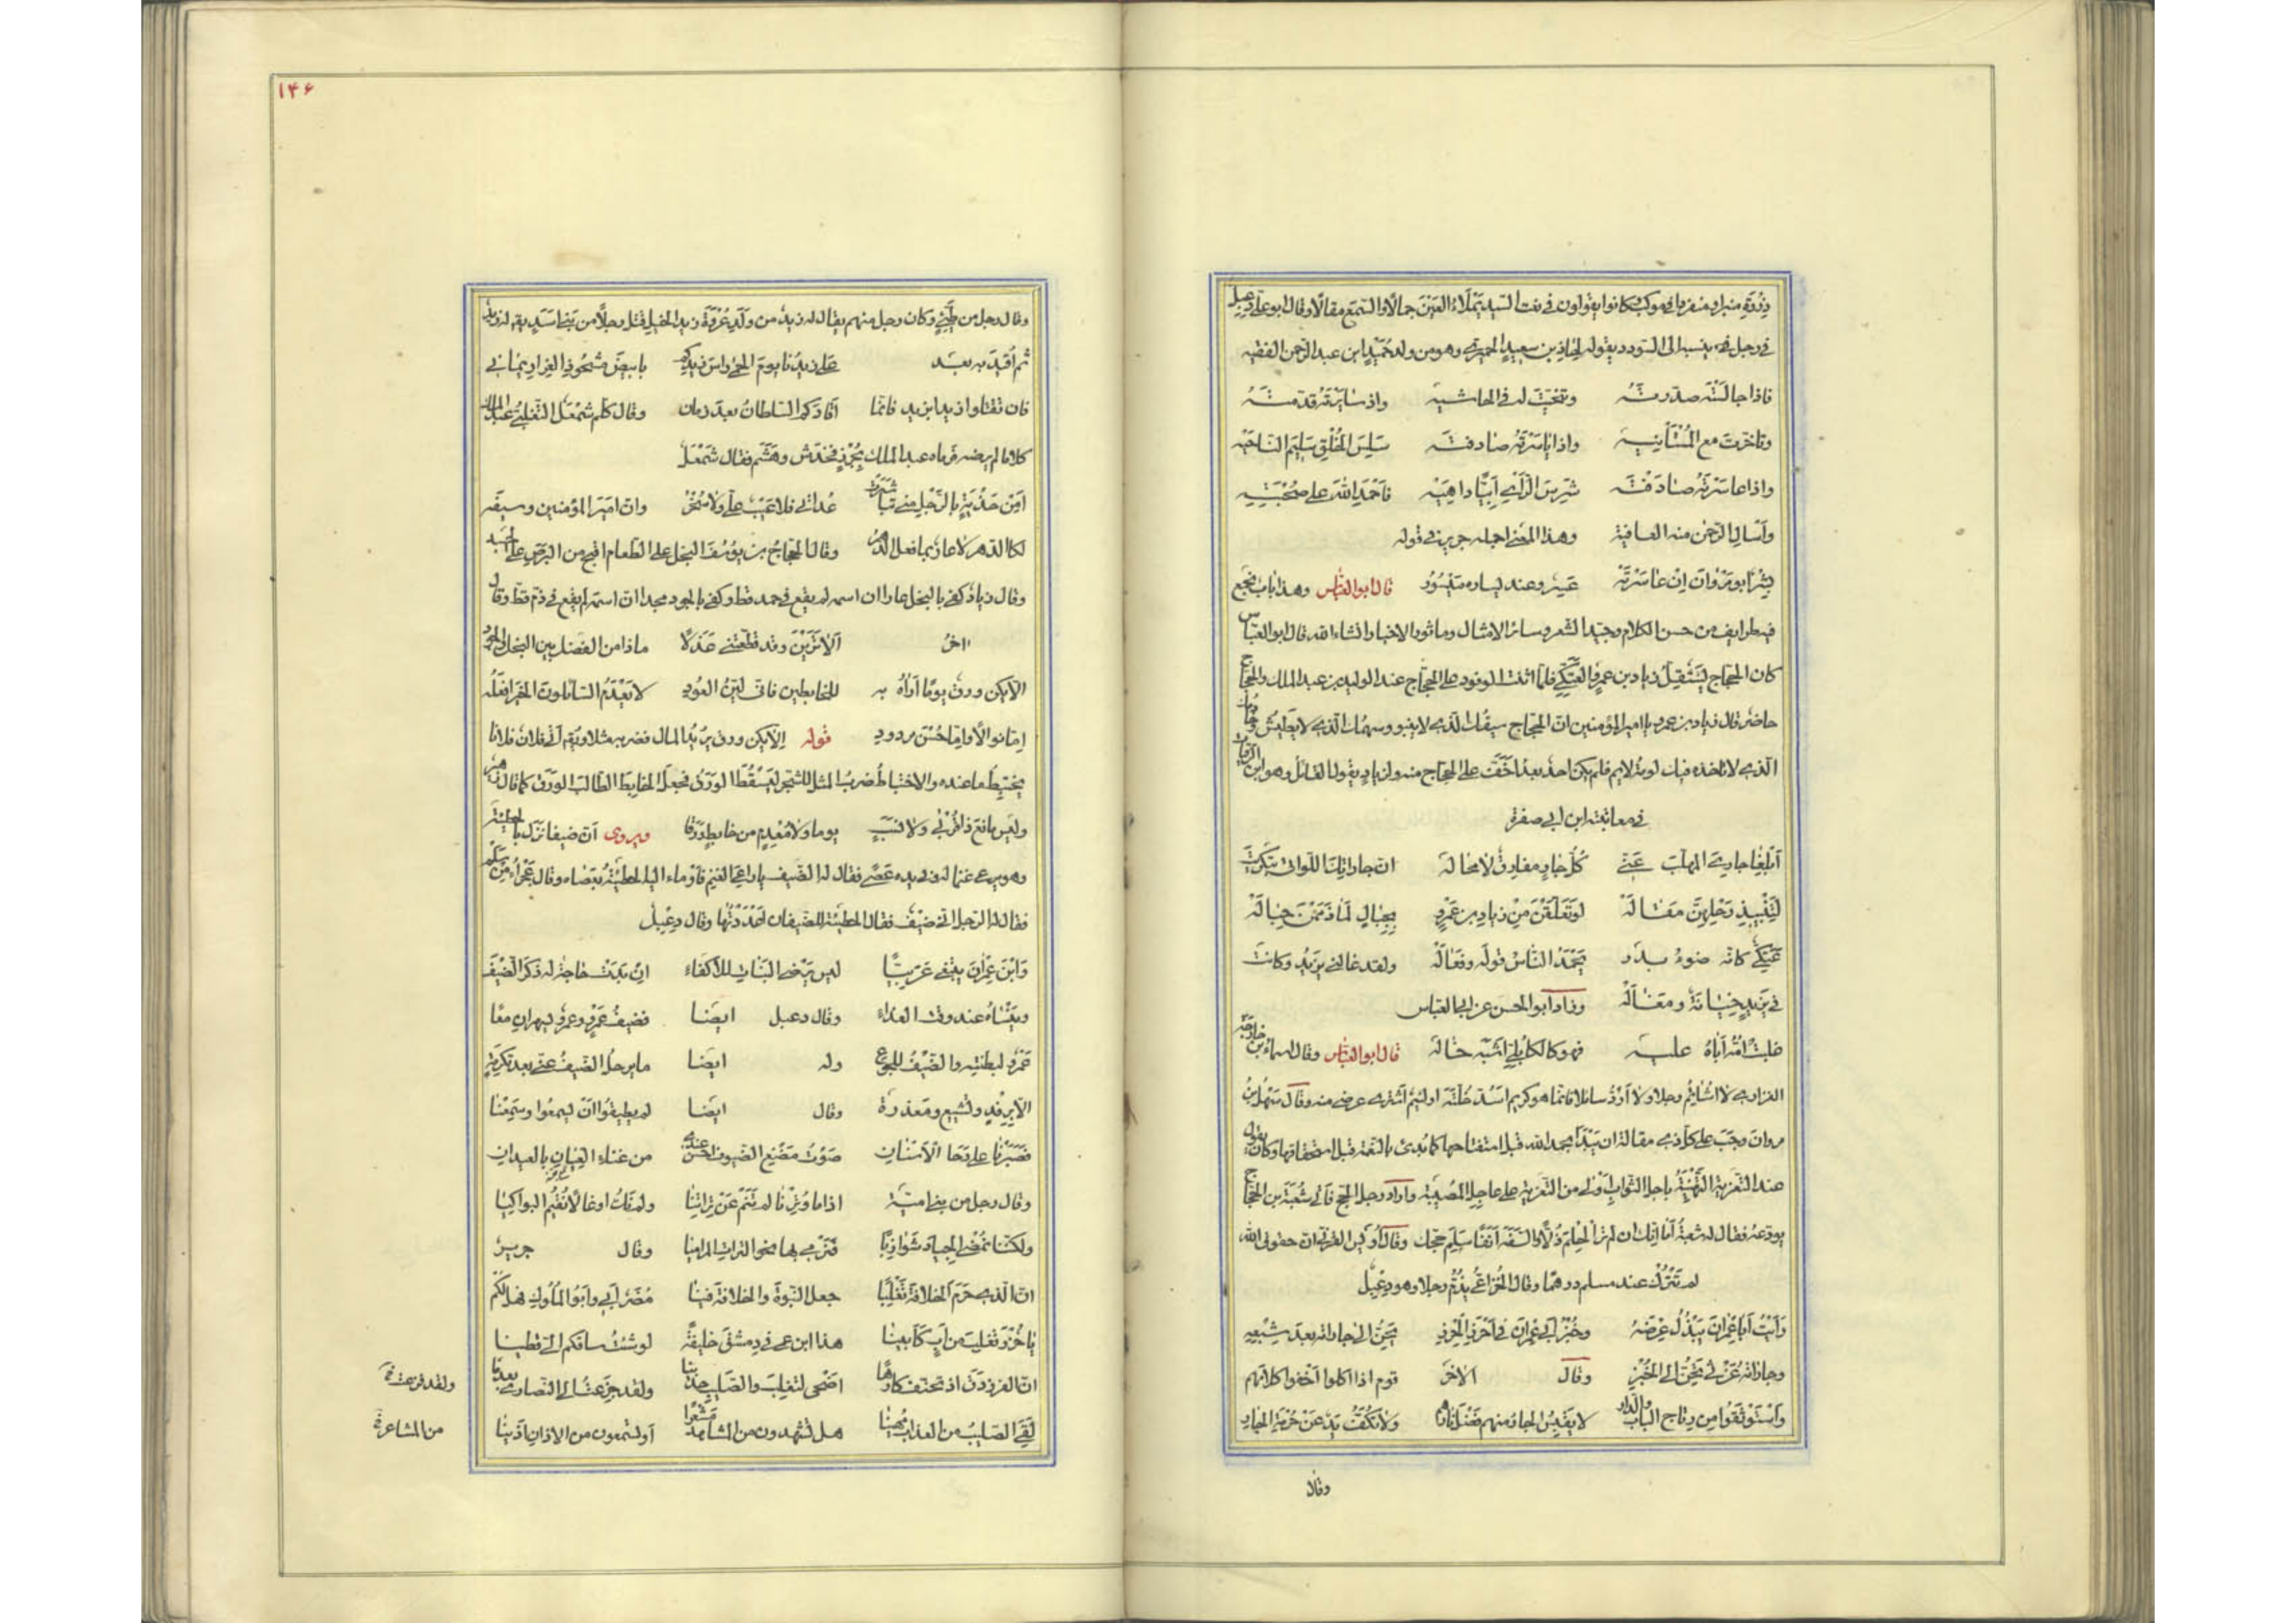 ذروة منبر او منفرها في موكب وكانوا يقولون في نعت السيد يملاء العين جمالا والسمع مقالا وقال ابو علي دعبل
في رجل نسبه الى السودد يقوله لمعاذ بن سعيد الحميري وهو من ولد حميد ابن عبد الرحمن الفقيه
فاذا جالسته صدرته وتنحيت له في الحاشيه واذا سايرته قدمته
وتاخرت مع المستأنيه واذا ياسرته صادفته سلس الخلق سليم الناحيه
واذا عاسرته صادفته شرس الرأي ابيا داهيه فاحمد الله على صحبته
واسال الرحمن منه العافية وهذا المعنى اجمله جرير في قوله
بشر ابو مروان ان عاسرته عسر وعند يساره ميسور قال ابو العباس وهذا باب نجمع
فيه طرايف من حسن الكلام وجيد الشعر وسائر الامثال وماثور الاخبار انشاء الله قال ابو العباس
كان الحجاج يستثقل زياد بن عمرو العتكي فلما اثنت الوفود على الحجاج عند الوليد بن عبد الملك والحجاج
حاضر قال زياد بن عمرو يا امير المؤمنين ان الحجاج سيفك الذي لا ينبو وسهمك الذي لا يطيش وخادمك
الذي لا تاخذه فيك لومة لايم فلم يكن احد بعد اخف على الحجاج منه ولزياد يقول القائل وهو ابن الرقيات
في معاتبة ابن ابي صفرة
ابلغا جاري المهلب عني كل جار مفارق لا محاله ان جاراتك اللواتي بتكريت
لتنبيذ رحلهن مقاله لو تعلقن من زياد بن عمرو بحبال لما ذممن حباله
عتكي كانه ضوء بدر يحمد الناس قوله وفعاله ولقد غالني يزيد وكانت
في يزيد خيانة ومغاله وزاد ابو الحسن عن ابي العباس
غلبت امه اباه عليه فهو كالكابلي اشبه خاله قال ابو العباس وقال اسماء بن خارجة
الفزاري لا اشاتم رجلا ولا ارد سائلا فانما هو كريم اسد خلته او لئيم اشتري عرضي منه وقال سهل بن
مروان وجب على كل ذي مقالة ان يبتدأ بحمد الله قبل استفتاحها كما بدئ بالنعمة قبل استحقاقها وكان يقول
عند التعزية التهنئة باجل الثواب اولى من التعزية على عاجل المصيبة واراد رجل الحج فاتى شعبة بن الحجاج
يودعه فقال له شعبة اما انك ان لم تر الحلم ذلا والسفه انفا سلم حجك وقال اويس القرني ان حقوق الله
لم تترك عند مسلم درهما وقال الخزاعي يذم رجلا وهو دعبل
رأيت ابا عمران يبذل عرضه وخبز ابي عمران في احرز الحرز يحن الى جاراته بعد شبعه
وجاراته غرثى تحن الى الخبز وقال الاخر قوم اذا اكلوا اخفوا كلامهم
واستوثقوا من رتاج الباب والدار لا يقبس الجار منهم فضل نارهم ولا تكف يد عن حرمة الجار
وقال
١۴۶
وقال رجل من طيئ وكان رجل منهم يقال له زيد من ولد عروة زيد الخيل قتل رجلا من بني اسد يقال له زيد
ثم اقيد به بعد علا زيدنا يوم الحمى راس زيدكم بابيض مشحوذ الغرار يماني
فان تقتلوا زيدا بزيد فانما اقادكم السلطان بعد زمان وقال كلم شمعل التغلبي عبد الملك
كلاما لم يرضه فرماه عبد الملك بجرز فخدش وهشم فقال شمعل
امن جذبة بالرجل مني تباشرت عداتي فلا عيب علي ولا سخر وان امير المؤمنين وسيفه
لكالدهر لا عار بما فعل الدهر وقال الحجاج بن يوسف البخل على الطعام اقبح من البرص على الجسد
وقال زياد كفى بالبخل عارا ان اسمه لم يقع في حمد قط وكفى بالجود مجدا ان اسمه لم يقع في ذم قط وقال
اخر الا ترين وقد قطعتني عذلا ماذا من الفضل بين البخل والجود
الا يكن ورق يوما اراه به للخابطين فاني لين العود لا يعدم السائلون الخير افعله
اما نوالا واما حسن مردود قوله الا يكن ورق يريد المال فضربه مثلا ويقال اتى فلان فلانا
يختبط ما عنده والاختباط ضرب المثل للشجر ليسقط الورق فجعل الخابط الطالب الورق كما قال زهير
وليس مانع ذي قربى ولا نسب يوما ولا معدم من خابط ورقا ويروى ان ضيفا نزل بالحطيئة
وهو يرعى غنما له في يده عصى فقال له الضيف يا راعي الغنم فاوماء اليه الحطيئة بعصاه وقال عجراء من سلم
فقال له الرجل اني ضيف فقال الحطيئة للضيفان اعددتها وقال دعبل
وابن عمران يبتغي عربيا ليس يرضى البنات للاكفاء ان بدت حاجة له ذكر الضيف
وينساه عند وقت الغداء وقال دعبل ايضا فضيف عمرو وعمرو ليسهران معا
عمرو لبطنته والضيف للجوع وله ايضا ما يرحل الضيف عني بعد تكرمة
الا برفد وتشييع ومعذرة وقال ايضا لم يطيقوا ان يسمعوا وسمعنا
فصبرنا على رحا الاسنان صوت مضغ الضيوف احسن عندي من غناء القيان بالعيدان
وقال رجل من بني امية اذا ما وترنا لم ننم عن تراتنا ولم نك اوغالا نقيم البواكيا
ولكننا نمضي الجياد شوازبا فنرمي بها نحو الترات المراميا وقال جرير
ان الذي حرم الخلافة تغلبا جعل النبوة والخلافة فينا مضر ابي وابو الملوك فهل لكم
يا خزر تغلب من اب كابينا هذا ابن عمي في دمشق خليفة لو شئت ساقكم الي قطينا
ان الفرزدق اذ تحنف كارها اضحى لتغلب والصليب خدينا ولقد جزعت الى النصارى بعدما
لقي الصليب من العذاب مهينا هل تشهدون من المشاعر مشعرا او تسمعون من الاذان اذينا
من المشاعر